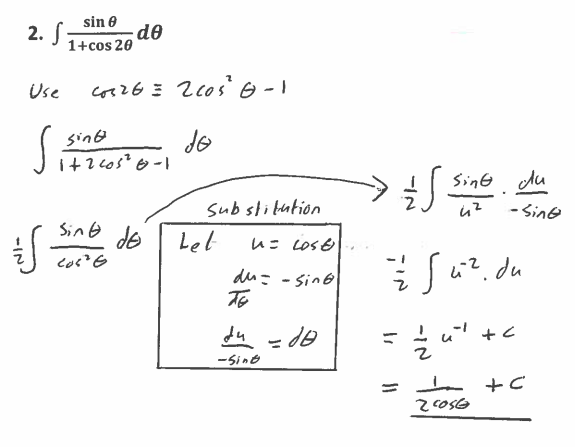 2. ∫ sin θ / (1+cos 2θ) dθ
Use cos2θ ≡ 2cos² θ - 1
∫ sinθ / (1+2cos² θ -1) dθ
½ ∫ sin θ / cos² θ dθ
Substitution
Let u = cosθ
du/dθ = - sinθ
du/-sinθ = dθ
½ ∫ sinθ / u² · du / -sinθ
-½ ∫ u⁻² . du
= ½ u⁻¹ + c
= 1 / 2cosθ + C